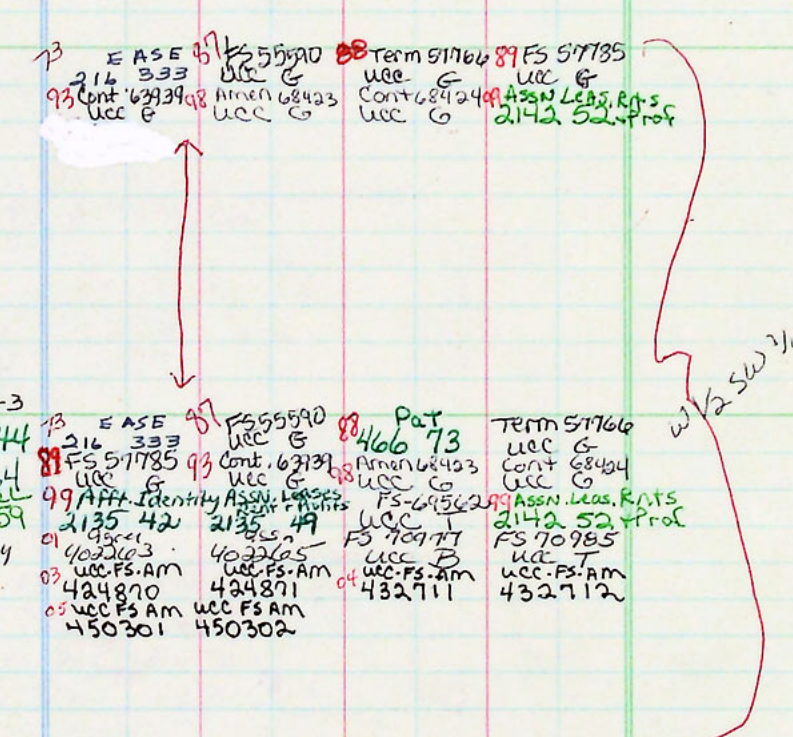 73 EASE 87 FS 55590 88 Term 57766 89 FS 57785
216 333 UCC G UCC G UCC G
93 Cont. 63939 98 Amen 68423 Cont 68424 99 ASSN. LEAS. Rnts
UCC G UCC G UCC G 2142 52 + Prof
W 1/2 SW
-3
73 EASE 87 FS 55590 88 Pat Term 57766
44 216 333 UCC G 466 73 UCC G
89 FS 57785 93 Cont. 63939 98 Amen 68423 Cont 68424
4 UCC G UCC G UCC G UCC G
99 Afft. Identity ASSN. Leases FS-69562 99 ASSN. Leas. Rnts
59 2135 42 2135 49 UCC T 2142 52 + Prof
01 Agree Assn FS 70977 FS 70985
y 402263 402265 UCC B UCC T
03 UCC-FS-Am UCC-FS-Am 04 UCC-FS-Am UCC-FS-Am
424870 424871 432711 432712
05 UCC FS Am UCC FS Am
450301 450302